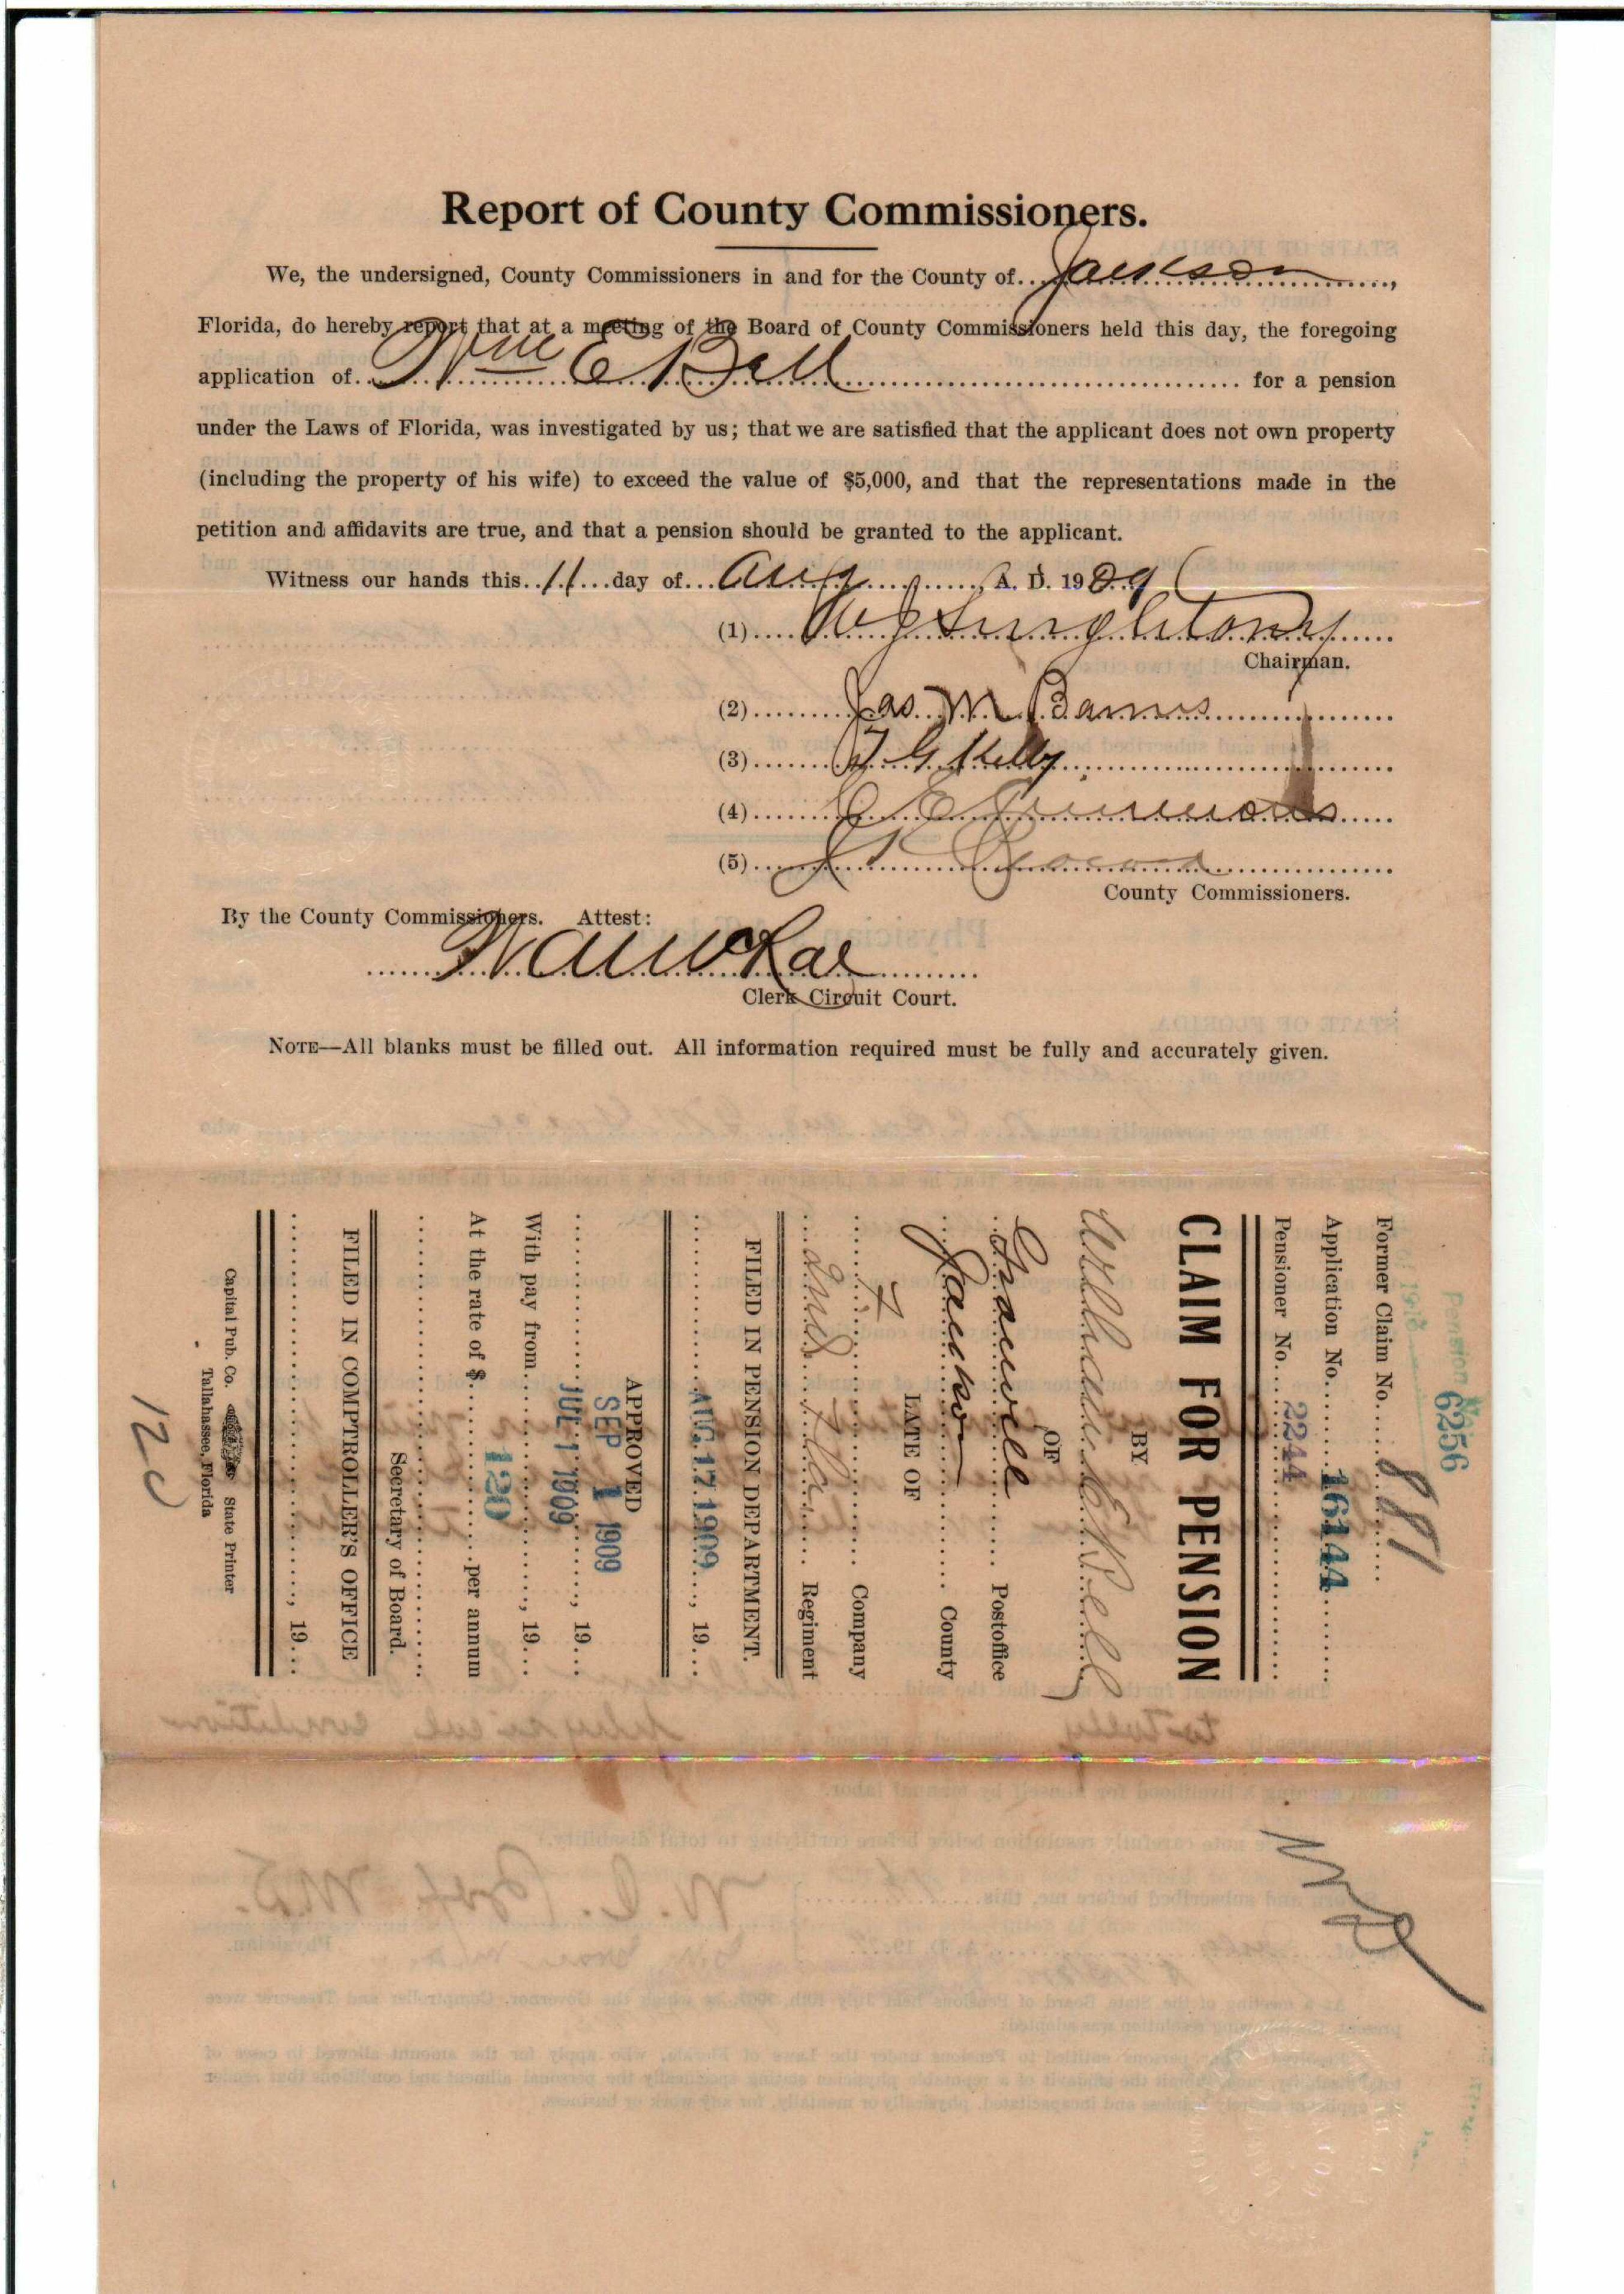 Report of County Commissioners.
We, the undersigned, County Commissioners in and for the County of Jackson,
Florida, do hereby report that at a meeting of the Board of County Commissioners held this day, the foregoing
application of Wm E Bell for a pension
under the Laws of Florida, was investigated by us; that we are satisfied that the applicant does not own property
(including the property of his wife) to exceed the value of $5,000, and that the representations made in the
petition and affidavits are true, and that a pension should be granted to the applicant.
Witness our hands this 11 day of Aug A. D. 1909
(1) W J Singletory
Chairman.
(2) Jas M Barnes
(3) G Kelly
(4) C E Simmons
(5)
County Commissioners.
By the County Commissioners. Attest:
McRae
Clerk Circuit Court.
NOTE—All blanks must be filled out. All information required must be fully and accurately given.
Pension
6256
Former Claim No. 881
Application No. 16144
Pensioner No. 2244
CLAIM FOR PENSION
BY
William E. Bell
OF
Graceville Postoffice
Jackson County
LATE OF
Company
2nd Fla Regiment
FILED IN PENSION DEPARTMENT.
AUG 17 1909, 19
APPROVED
SEP 1 1909
, 19
JUL 1 1909
With pay from , 19
At the rate of $ 120 per annum
Secretary of Board.
FILED IN COMPTROLLER'S OFFICE
, 19
Capital Pub. Co. State Printer
Tallahassee, Florida
120